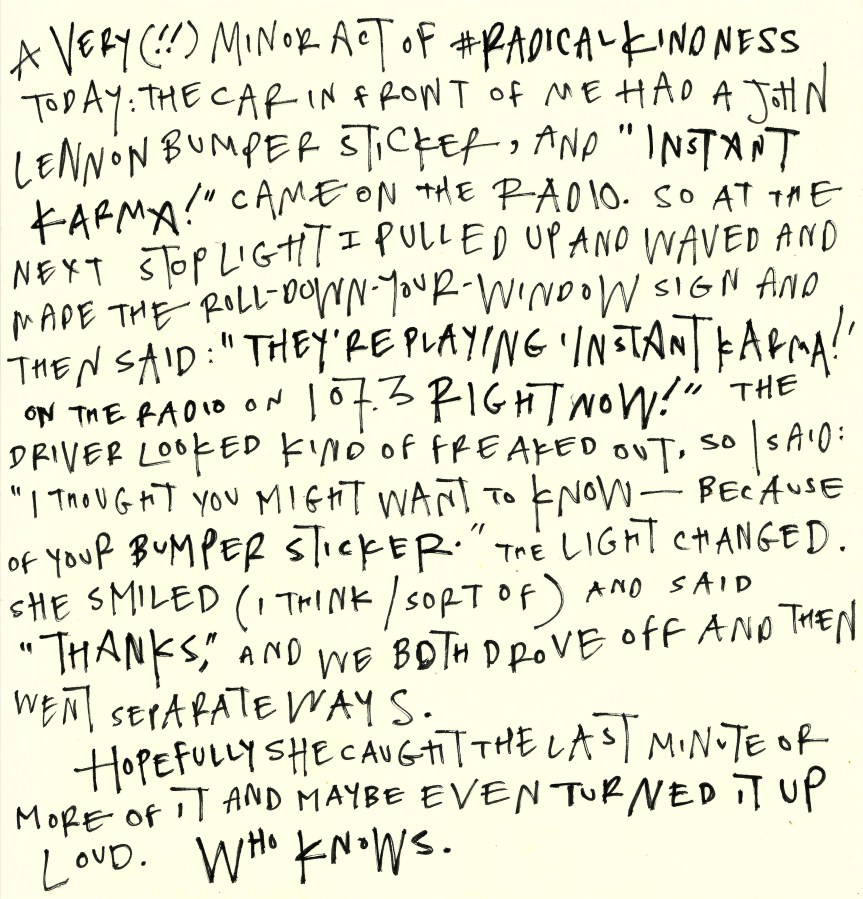 A VERY (!!) MINOR ACT OF #RADICALKINDNESS
TODAY: THE CAR IN FRONT OF ME HAD A JOHN
LENNON BUMPER STICKER, AND "INSTANT
KARMA!" CAME ON THE RADIO. SO AT THE
NEXT STOPLIGHT I PULLED UP AND WAVED AND
MADE THE ROLL-DOWN-YOUR-WINDOW SIGN AND
THEN SAID: "THEY'RE PLAYING 'INSTANT KARMA!'
ON THE RADIO ON 107.3 RIGHT NOW!" THE
DRIVER LOOKED KIND OF FREAKED OUT, SO I SAID:
"I THOUGHT YOU MIGHT WANT TO KNOW — BECAUSE
OF YOUR BUMPER STICKER." THE LIGHT CHANGED.
SHE SMILED (I THINK/SORT OF) AND SAID
"THANKS," AND WE BOTH DROVE OFF AND THEN
WENT SEPARATE WAYS.
HOPEFULLY SHE CAUGHT THE LAST MINUTE OR
MORE OF IT AND MAYBE EVEN TURNED IT UP
LOUD. WHO KNOWS.